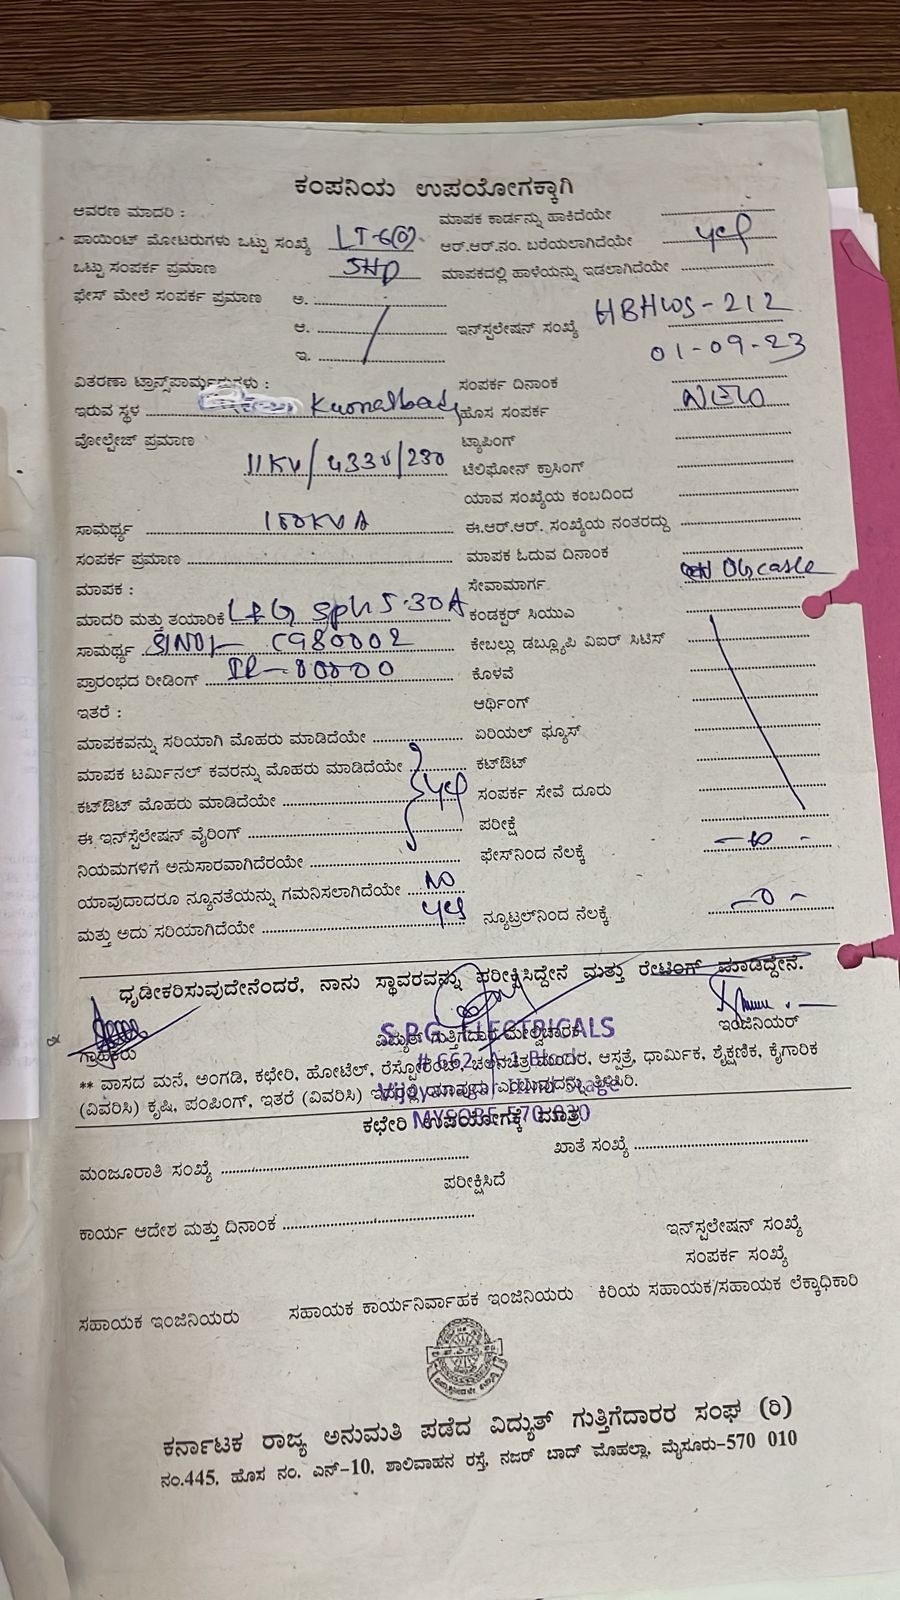 ಕಂಪನಿಯ ಉಪಯೋಗಕ್ಕಾಗಿ
ಆವರಣ ಮಾದರಿ : ಮಾಪಕ ಕಾರ್ಡನ್ನು ಹಾಕಿದೆಯೇ
ಪಾಯಿಂಟ್ ಮೋಟರುಗಳು ಒಟ್ಟು ಸಂಖ್ಯೆ LT-6(0) ಆರ್.ಆರ್.ನಂ. ಬರೆಯಲಾಗಿದೆಯೇ yes
ಒಟ್ಟು ಸಂಪರ್ಕ ಪ್ರಮಾಣ 5HP ಮಾಪಕದಲ್ಲಿ ಹಾಳೆಯನ್ನು ಇಡಲಾಗಿದೆಯೇ
ಫೇಸ್ ಮೇಲೆ ಸಂಪರ್ಕ ಪ್ರಮಾಣ ಅ.
ಆ. ಇನ್‌ಸ್ಟಲೇಷನ್ ಸಂಖ್ಯೆ HBHWS-212
ಇ. 01-09-23
ವಿತರಣಾ ಟ್ರಾನ್ಸ್‌ಪಾರ್ಮರುಗಳು : ಸಂಪರ್ಕ ದಿನಾಂಕ
ಇರುವ ಸ್ಥಳ ಹೊಸ ಸಂಪರ್ಕ NEW
ವೋಲ್ಟೇಜ್ ಪ್ರಮಾಣ 11KV/433V/230 ಟ್ಯಾಪಿಂಗ್
ಟೆಲಿಫೋನ್ ಕ್ರಾಸಿಂಗ್
ಯಾವ ಸಂಖ್ಯೆಯ ಕಂಬದಿಂದ
ಸಾಮರ್ಥ್ಯ 100KVA ಈ.ಆರ್.ಆರ್. ಸಂಖ್ಯೆಯ ನಂತರದ್ದು
ಸಂಪರ್ಕ ಪ್ರಮಾಣ ಮಾಪಕ ಓದುವ ದಿನಾಂಕ
ಮಾಪಕ : ಸೇವಾಮಾರ್ಗ
ಮಾದರಿ ಮತ್ತು ತಯಾರಿಕೆ L&G 5-30A ಕಂಡಕ್ಟರ್ ಸಿಯುಎ
ಸಾಮರ್ಥ್ಯ C980002 ಕೇಬಲ್ಲು ಡಬ್ಲ್ಯೂಪಿ ವಿಐರ್ ಸಿಟಿಸ್
ಪ್ರಾರಂಭದ ರೀಡಿಂಗ್ IR-00000 ಕೊಳವೆ
ಇತರೆ : ಆರ್ಥಿಂಗ್
ಮಾಪಕವನ್ನು ಸರಿಯಾಗಿ ಮೊಹರು ಮಾಡಿದೆಯೇ ಏರಿಯಲ್ ಫ್ಯೂಸ್
ಮಾಪಕ ಟರ್ಮಿನಲ್ ಕವರನ್ನು ಮೊಹರು ಮಾಡಿದೆಯೇ ಕಟ್‌ಔಟ್
ಕಟ್‌ಔಟ್ ಮೊಹರು ಮಾಡಿದೆಯೇ yes ಸಂಪರ್ಕ ಸೇವೆ ದೂರು
ಈ ಇನ್‌ಸ್ಟೆಲೇಷನ್ ವೈರಿಂಗ್ ಪರೀಕ್ಷೆ
ನಿಯಮಗಳಿಗೆ ಅನುಸಾರವಾಗಿದೆರಯೇ ಫೇಸ್‌ನಿಂದ ನೆಲಕ್ಕೆ
ಯಾವುದಾದರೂ ನ್ಯೂನತೆಯನ್ನು ಗಮನಿಸಲಾಗಿದೆಯೇ NO
ಮತ್ತು ಅದು ಸರಿಯಾಗಿದೆಯೇ yes ನ್ಯೂಟ್ರಲ್‌ನಿಂದ ನೆಲಕ್ಕೆ -0-
ಧೃಡೀಕರಿಸುವುದೇನೆಂದರೆ, ನಾನು ಸ್ಥಾವರವನ್ನು ಪರೀಕ್ಷಿಸಿದ್ದೇನೆ ಮತ್ತು ರೇಟಿಂಗ್ ಮಾಡಿದ್ದೇನೆ.
ಗ್ರಾಹಕರು ವಿದ್ಯುತ್ ಗುತ್ತಿಗೆದಾರ ಮೇಲ್ವಿಚಾರಕ ಇಂಜಿನಿಯರ್
S.P.G. ELECTRICALS
# 662, A-1 Block
Vijaynagar IIIrd Stage
MYSORE-570 030
** ವಾಸದ ಮನೆ, ಅಂಗಡಿ, ಕಛೇರಿ, ಹೋಟೆಲ್, ರೆಸ್ಟೋರೆಂಟ್, ಚಲನಚಿತ್ರ ಮಂದಿರ, ಆಸ್ಪತ್ರೆ, ಧಾರ್ಮಿಕ, ಶೈಕ್ಷಣಿಕ, ಕೈಗಾರಿಕೆ
(ವಿವರಿಸಿ) ಕೃಷಿ, ಪಂಪಿಂಗ್, ಇತರೆ (ವಿವರಿಸಿ) ಇದರಲ್ಲಿ ಯಾವುದು ಎಂಬುವುದನ್ನು ತಿಳಿಸಿರಿ.
ಕಛೇರಿ ಉಪಯೋಗಕ್ಕೆ ಮಾತ್ರ
ಮಂಜೂರಾತಿ ಸಂಖ್ಯೆ ಖಾತೆ ಸಂಖ್ಯೆ
ಪರೀಕ್ಷಿಸಿದೆ
ಕಾರ್ಯ ಆದೇಶ ಮತ್ತು ದಿನಾಂಕ
ಇನ್‌ಸ್ಟಲೇಷನ್ ಸಂಖ್ಯೆ
ಸಂಪರ್ಕ ಸಂಖ್ಯೆ
ಸಹಾಯಕ ಇಂಜಿನಿಯರು ಸಹಾಯಕ ಕಾರ್ಯನಿರ್ವಾಹಕ ಇಂಜಿನಿಯರು ಕಿರಿಯ ಸಹಾಯಕ/ಸಹಾಯಕ ಲೆಕ್ಕಾಧಿಕಾರಿ
ಕರ್ನಾಟಕ ರಾಜ್ಯ ಅನುಮತಿ ಪಡೆದ ವಿದ್ಯುತ್ ಗುತ್ತಿಗೆದಾರರ ಸಂಘ (ರಿ)
ನಂ.445, ಹೊಸ ನಂ. ಎನ್-10, ಶಾಲಿವಾಹನ ರಸ್ತೆ, ನಜರ್ ಬಾದ್ ಮೊಹಲ್ಲಾ, ಮೈಸೂರು-570 010